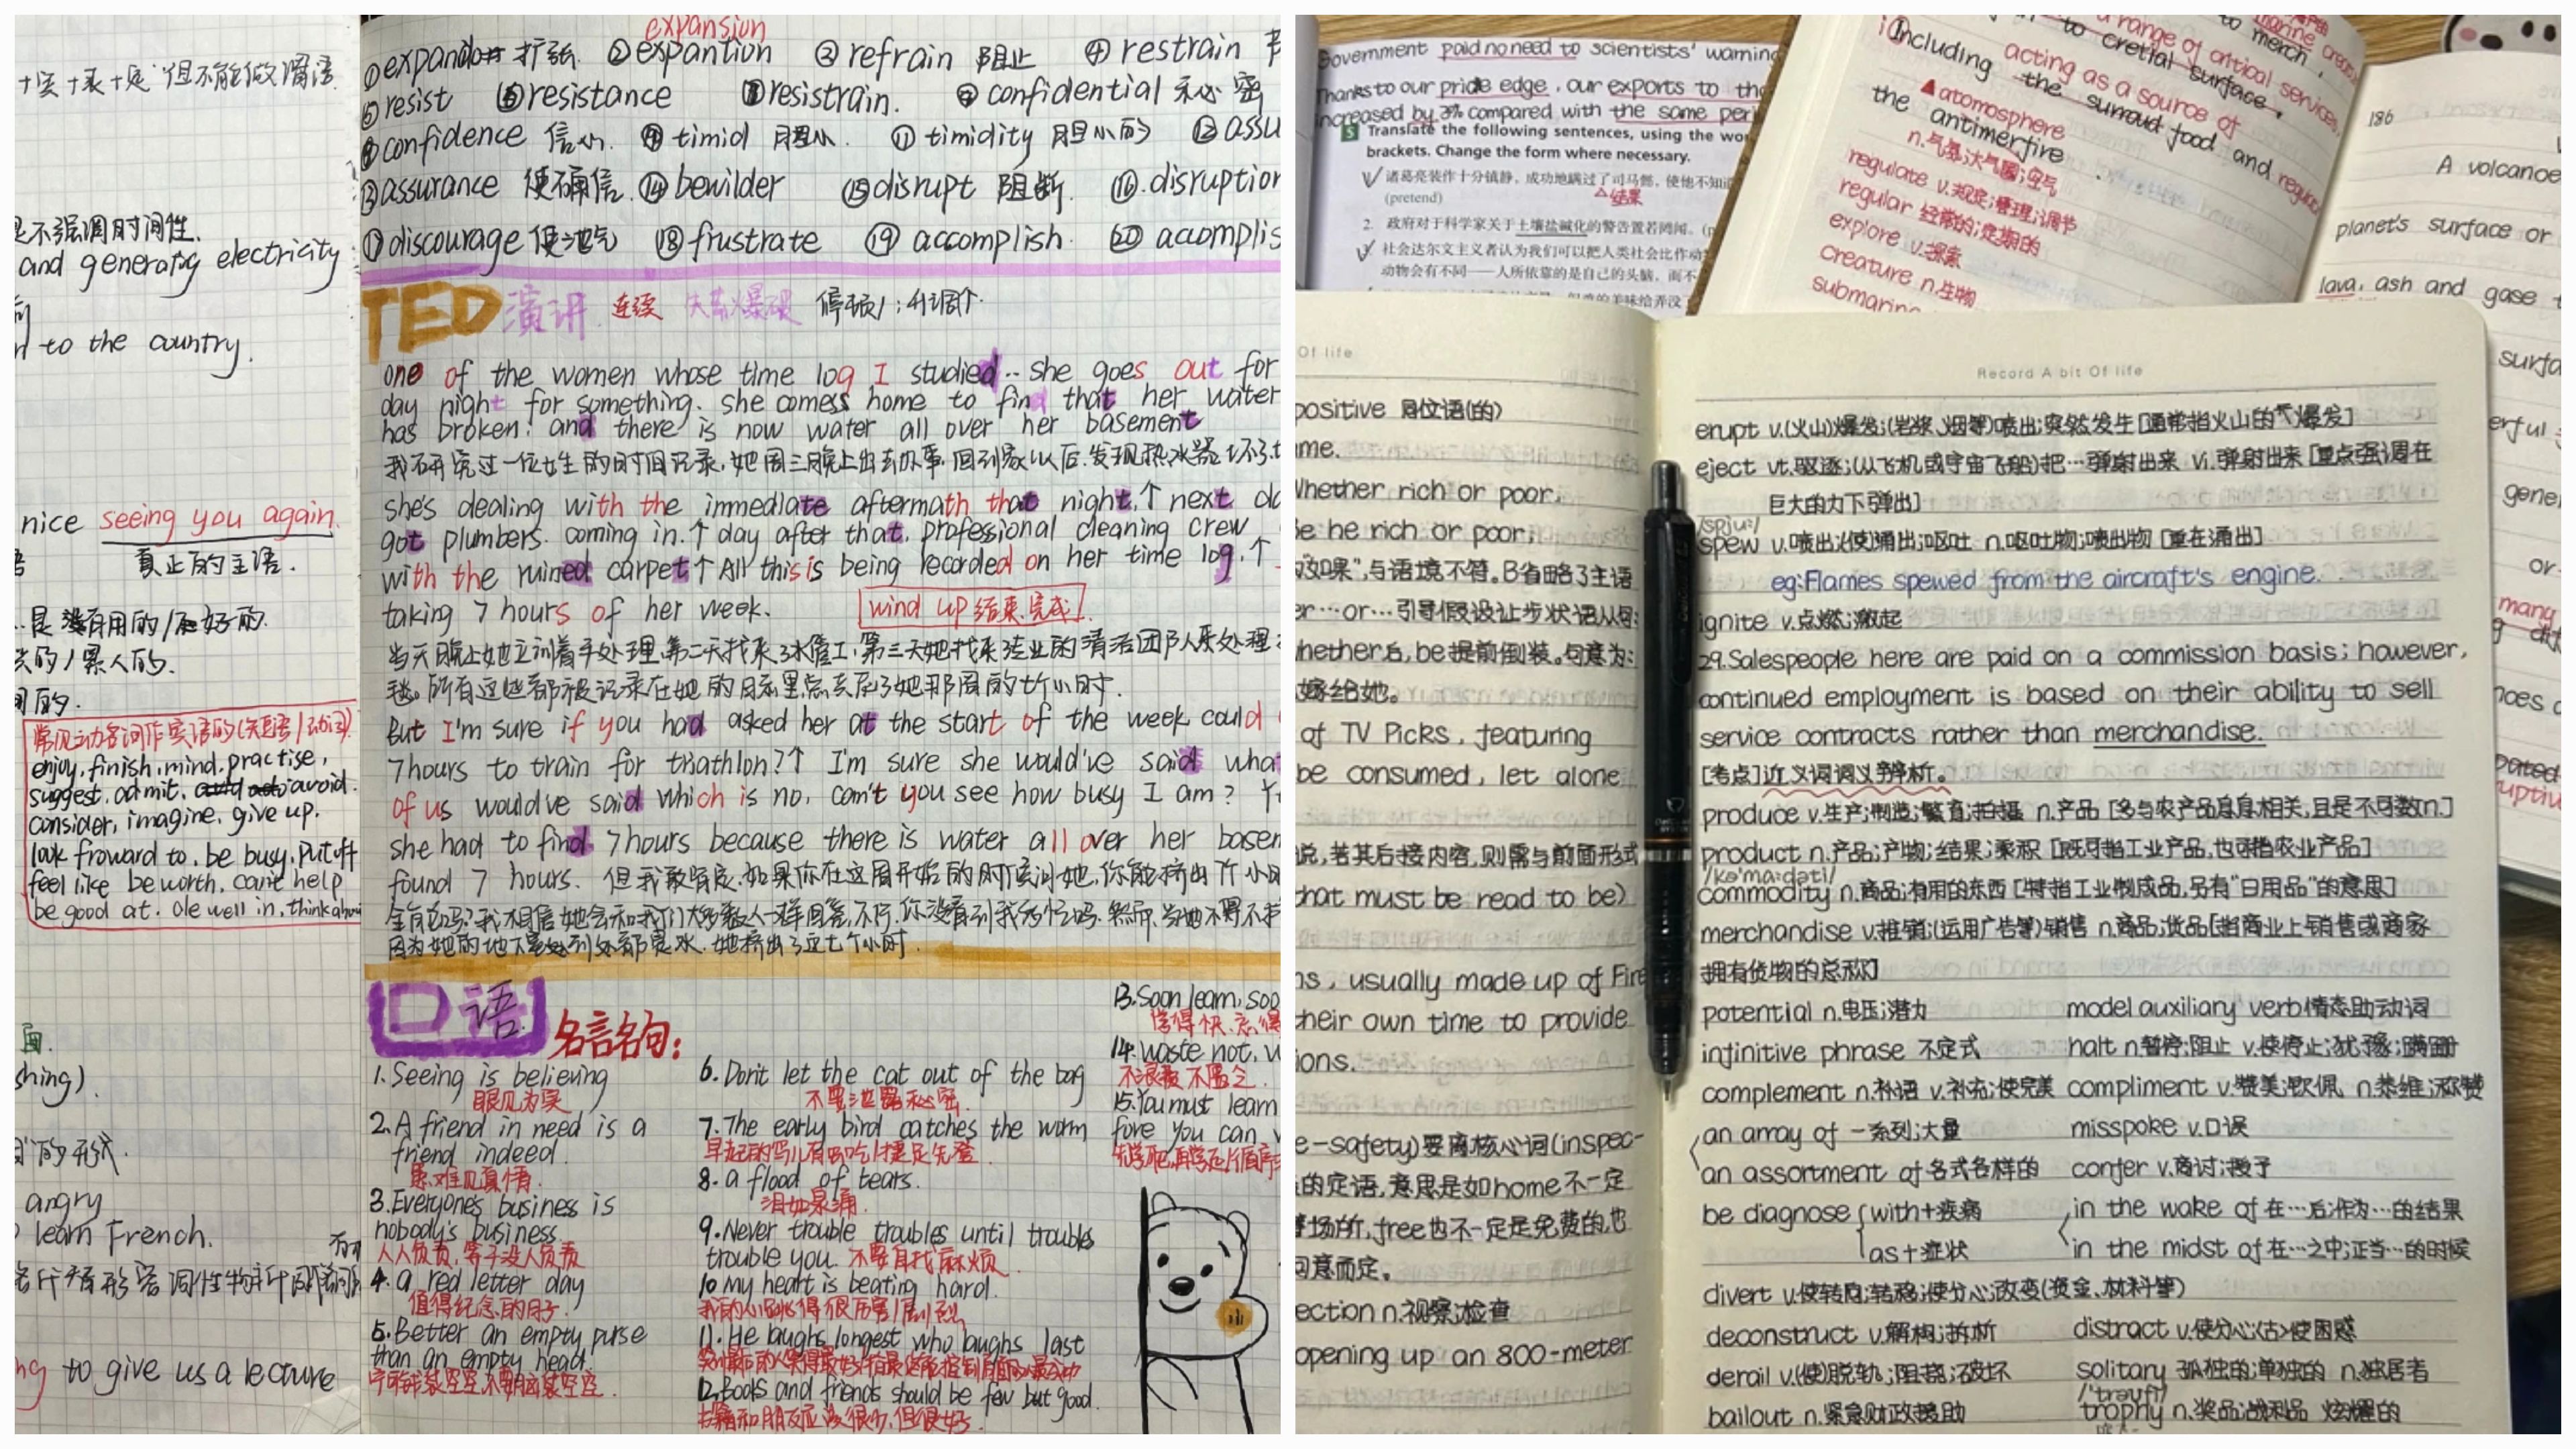 +实+表+定 但不能做谓语
是不强调时间性.
and generatg electricity
to the country.
nice seeing you again.
真正的主语.
..是没有用的/不好的.
的/累人的.
的.
常见动名词作宾语的(短语/动词)
enjoy, finish, mind, practise,
suggest, admit, avoid.
consider, imagine, give up.
look froward to, be busy, put off
feel like be worth, can't help
be good at. ole well in, think abou
面.
shing).
的形式.
angry
learn French.
ng to give us a lecture
expansion
①expand 扩张 ②expantion ③refrain 阻止 ④restrain
⑤resist ⑥resistance ⑦resistrain. confidential 私密
confidence 信心. timid 胆小. ⑪timidity 胆小的 ⑫assu
⑬assurance 使确信. ⑭bewilder ⑮disrupt 阻断. ⑯.disruption
⑰discourage 使泄气 ⑱frustrate ⑲accomplish. ⑳accomplis
TED 演讲 连续 失去爆破 停顿/;升调↑.
one of the women whose time log I studied.. she goes out for
day night for something. she comess home to find that her water
has broken. and there is now water all over her basement
我研究过一位女生的时间记录,她周三晚上出去办事.回到家以后.发现热水器坏了.
she's dealing with the immediate aftermath that night,↑ next da
got plumbers. coming in.↑ day after that, professional cleaning crew
with the ruined carpet↑ All this is being recorded on her time log.↑
taking 7 hours of her week. wind up 结束.完成
当天晚上她立刻着手处理,第二天找来了水管工,第三天她找来专业的清洁团队来处理
毯。所有这些都被记录在她的日志里总共花了她那周的七个小时.
But I'm sure if you had asked her at the start of the week could
7hours to train for triathlon?↑ I'm sure she would've said wha
of us would've said which is no, can't you see how busy I am? Y
she had to find 7hours because there is water all over her basem
found 7 hours. 但我敢肯定.如果你在这周开始的时候问她,你能挤出七个小时
全能吗?我相信她会和我们大多数人一样回答,不行.你没看到我多忙吗.然而,当她不得不
因为她的地下室到处都是水.她挤出了这七个小时.
口语 名言名句:
1.Seeing is believing
眼见为实
2.A friend in need is a
friend indeed.
患难见真情.
3.Everyone's business is
nobody's business.
人人负责,等于没人负责
4.a red letter day
值得纪念的日子.
5.Better an empty purse
than an empty head.
宁可钱袋空空,不要脑袋空空.
6.Don't let the cat out of the bag
不要泄露秘密.
7.The early bird catches the worm
早起的鸟儿有虫吃/捷足先登.
8.a flood of tears.
泪如泉涌.
9.Never trouble troubles until troubles
trouble you. 不要自找麻烦.
10.My heart is beating hard.
我的心跳得很厉害/剧烈
11.He laughs longest who laughs last
12.Books and friends should be few but good.
书籍和朋友应该很少,但很好.
13.Soon learn, soo
学得快,忘得
14.Waste not, w
不浪费 不愁乏.
15.You must learn
fore you can
Government paid no need to scientists' warning
Thanks to our pride edge, our exports to the
increased by 3% compared with the same peri
5 Translate the following sentences, using the wor
brackets. Change the form where necessary.
诸葛亮装作十分镇静,成功地瞒过了司马懿,使他不知道
(pretend)
△结果
2. 政府对于科学家关于土壤盐碱化的警告置若罔闻。
社会达尔文主义者认为我们可以把人类社会比作动
动物会有不同——人所依靠的是自己的头脑,而不
a range of critical services,
to cretial surface,
to merch,
Including the surroud food and
acting as a source of
the antimerfire
▲atomosphere
n.气氛;大气圈;空气
regulate v.规定;管理;调节
regular 经常的;定期的
explore v.探索
creature n.生物
submarine
186
A volcanoe
planet's surface or
lava, ash and gase
surfa
erful
gener
or
many
Of life
positive 同位语(的)
me.
Whether rich or poor,
Be he rich or poor,
"如果",与语境不符。B省略了主语
er…or…引导假设让步状语从句:
hether后,be提前倒装。句意为:
嫁给她。
of TV Picks, featuring
be consumed, let alone
说,若其后接内容,则需与前面形式
that must be read to be)
ns, usually made up of Fire
their own time to provide
ions.
e-safety)要离核心词(inspec-
的定语,意思是如home不一定
场所,free也不一定是免费的,也
意而定。
ection n.视察;检查
opening up an 800-meter
Record A bit Of life
erupt v.(火山)爆发;(岩浆、烟等)喷出;突然发生[通常指火山的爆发]
eject vt.驱逐;(从飞机或宇宙飞船)把…弹射出来 vi.弹射出来[重点强调在
巨大的力下弹出]
/spju:/
spew v.喷出;(使)涌出;呕吐 n.呕吐物;喷出物 [重在涌出]
eg:Flames spewed from the aircraft's engine.
ignite v.点燃;激起
29.Salespeople here are paid on a commission basis; however,
continued employment is based on their ability to sell
service contracts rather than merchandise.
[考点]近义词词义辨析。
produce v.生产;制造;繁育;拍摄 n.产品 [多与农产品息息相关,且是不可数n.]
product n.产品;产物;结果;乘积 [既可指工业产品,也可指农业产品]
/kə'ma:dəti/
commodity n.商品;有用的东西[特指工业制成品,另有"日用品"的意思]
merchandise v.推销;(运用广告等)销售 n.商品;货品[指商业上销售或商家
拥有货物的总称]
potential n.电压;潜力 model auxiliary verb情态助动词
infinitive phrase 不定式 halt n.暂停;阻止 v.使停止;犹豫;蹒跚
complement n.补语 v.补充;使完美 compliment v.赞美;钦佩 n.恭维;称赞
an array of 一系列;大量 misspoke v.口误
an assortment of 各式各样的 confer v.商讨;授予
be diagnose with+疾病 in the wake of 在…后;作为…的结果
as+症状 in the midst of 在…之中;正当…的时候
divert v.使转向;转移;使分心;改变(资金、材料等)
deconstruct v.解构;拆析 distract v.使分心;(古)使困惑
derail v.(使)脱轨;阻挠;破坏 solitary 孤独的;单独的 n.独居者
bailout n.紧急财政援助 trophy n.奖品;战利品 炫耀的